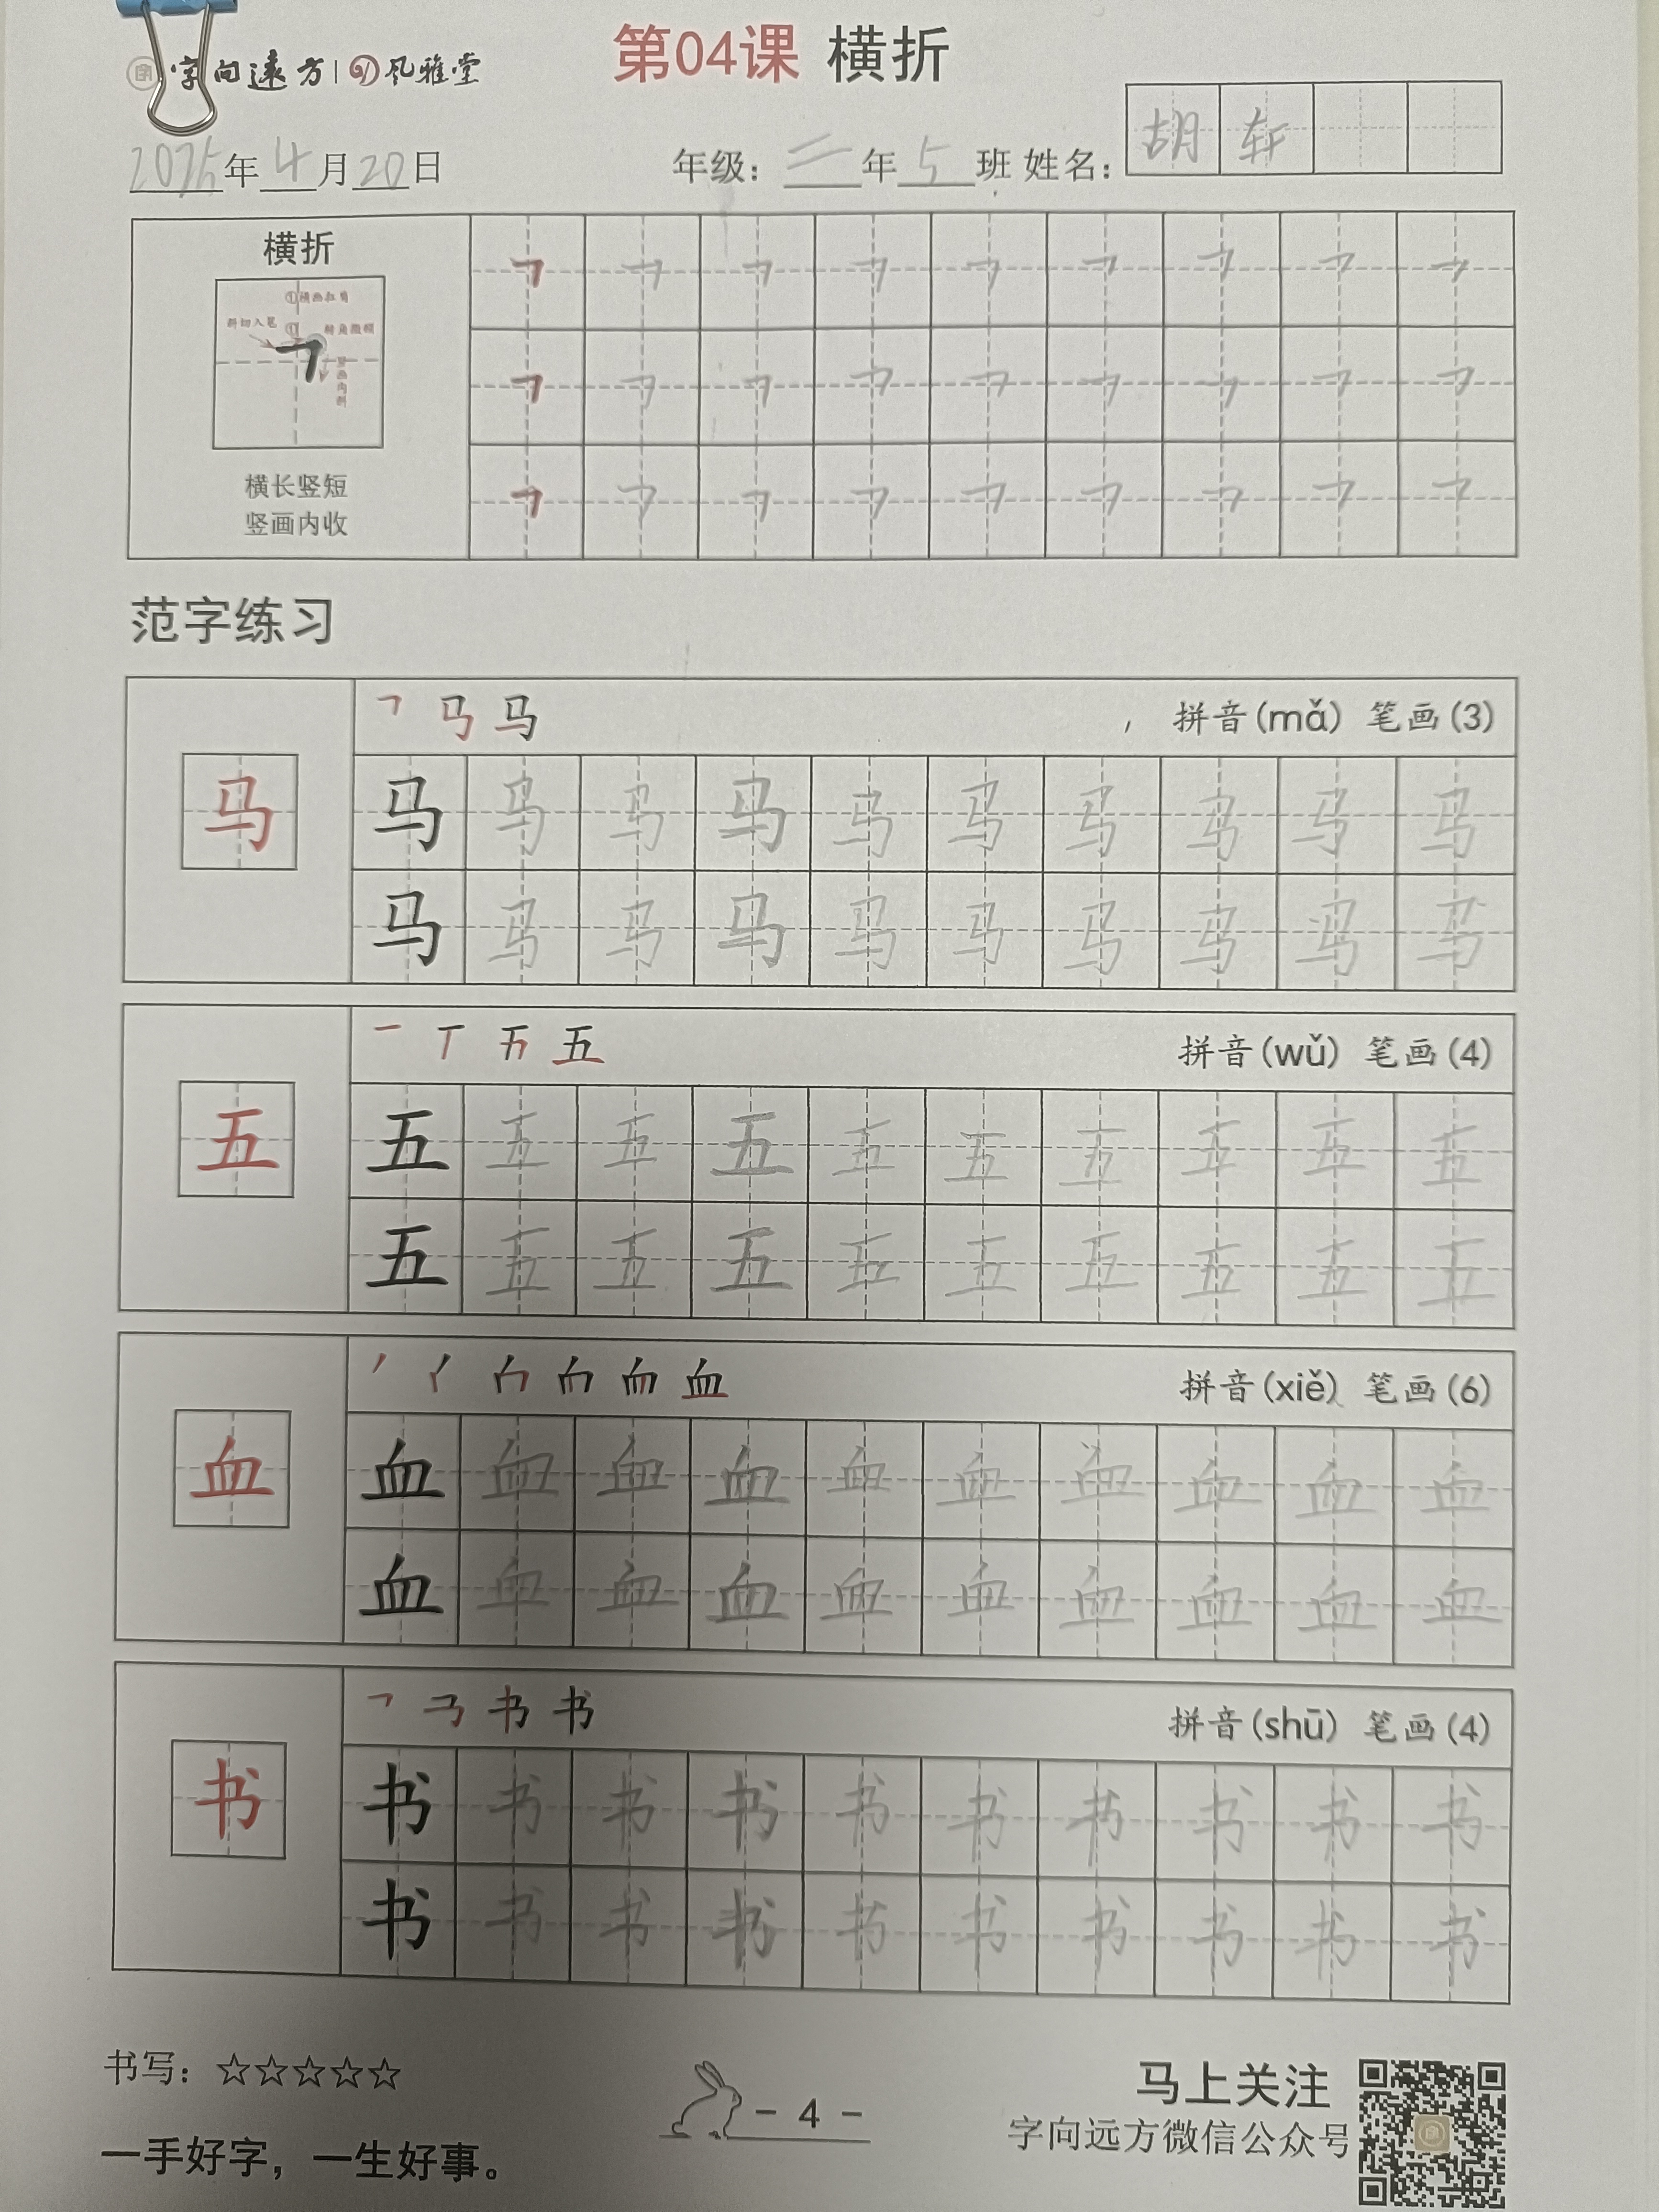 字向远方 | 风雅堂
第04课 横折
2025年4月20日 年级：二年5班 姓名：胡轩
横折
①横画扛肩
斜切入笔 ① 转角微顿
竖画内斜
横长竖短
竖画内收
范字练习
拼音(mǎ) 笔画(3)
马 马 马 马 马 马 马 马 马 马 马
马 马 马 马 马 马 马 马 马 马
拼音(wǔ) 笔画(4)
五 五 五 五 五 五 五 五 五 五 五
五 五 五 五 五 五 五 五 五 五
拼音(xiě) 笔画(6)
血 血 血 血 血 血 血 血 血 血 血
血 血 血 血 血 血 血 血 血 血
拼音(shū) 笔画(4)
书 书 书 书 书 书 书 书 书 书 书
书 书 书 书 书 书 书 书 书 书
书写：☆☆☆☆☆
一手好字，一生好事。
- 4 -
马上关注
字向远方微信公众号